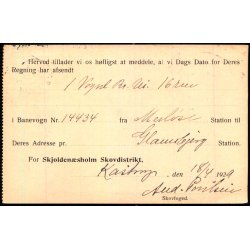 Herved tillader vi os høfligst at meddele, at vi Dags Dato for Deres
Regning har afsendt
1 Vogn
I Banevogn Nr. 14434 fra Merløse Station til
Deres Adresse pr. Glamsbjerg Station.
For Skjoldenæsholm Skovdistrikt.
Kastrup, den 18/4 1929
And.
Skovfoged.